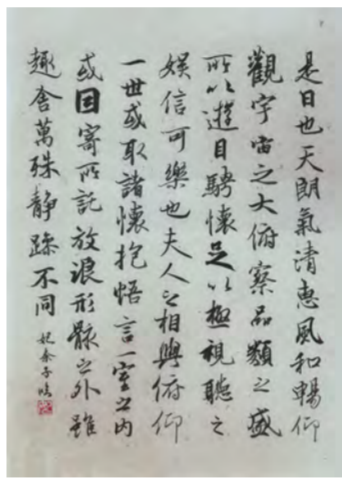 是日也天朗氣清惠風和暢仰
觀宇宙之大俯察品類之盛
所以遊目騁懷足以極視聽之
娛信可樂也夫人之相與俯仰
一世或取諸懷抱悟言一室之内
或因寄所託放浪形骸之外雖
趣舍萬殊靜躁不同